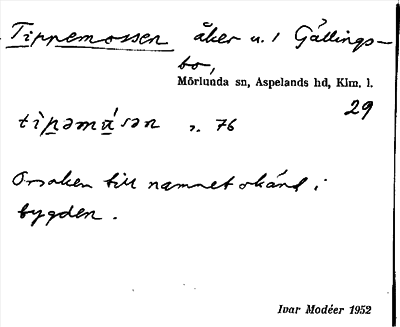 Tippemossen åker u. 1 Gällings-
bo,
Mörlunda sn, Aspelands hd, Klm. l.
29
tìpəmúsən s. 76
Orsaken till namnet okänd i
bygden.
Ivar Modéer 1952